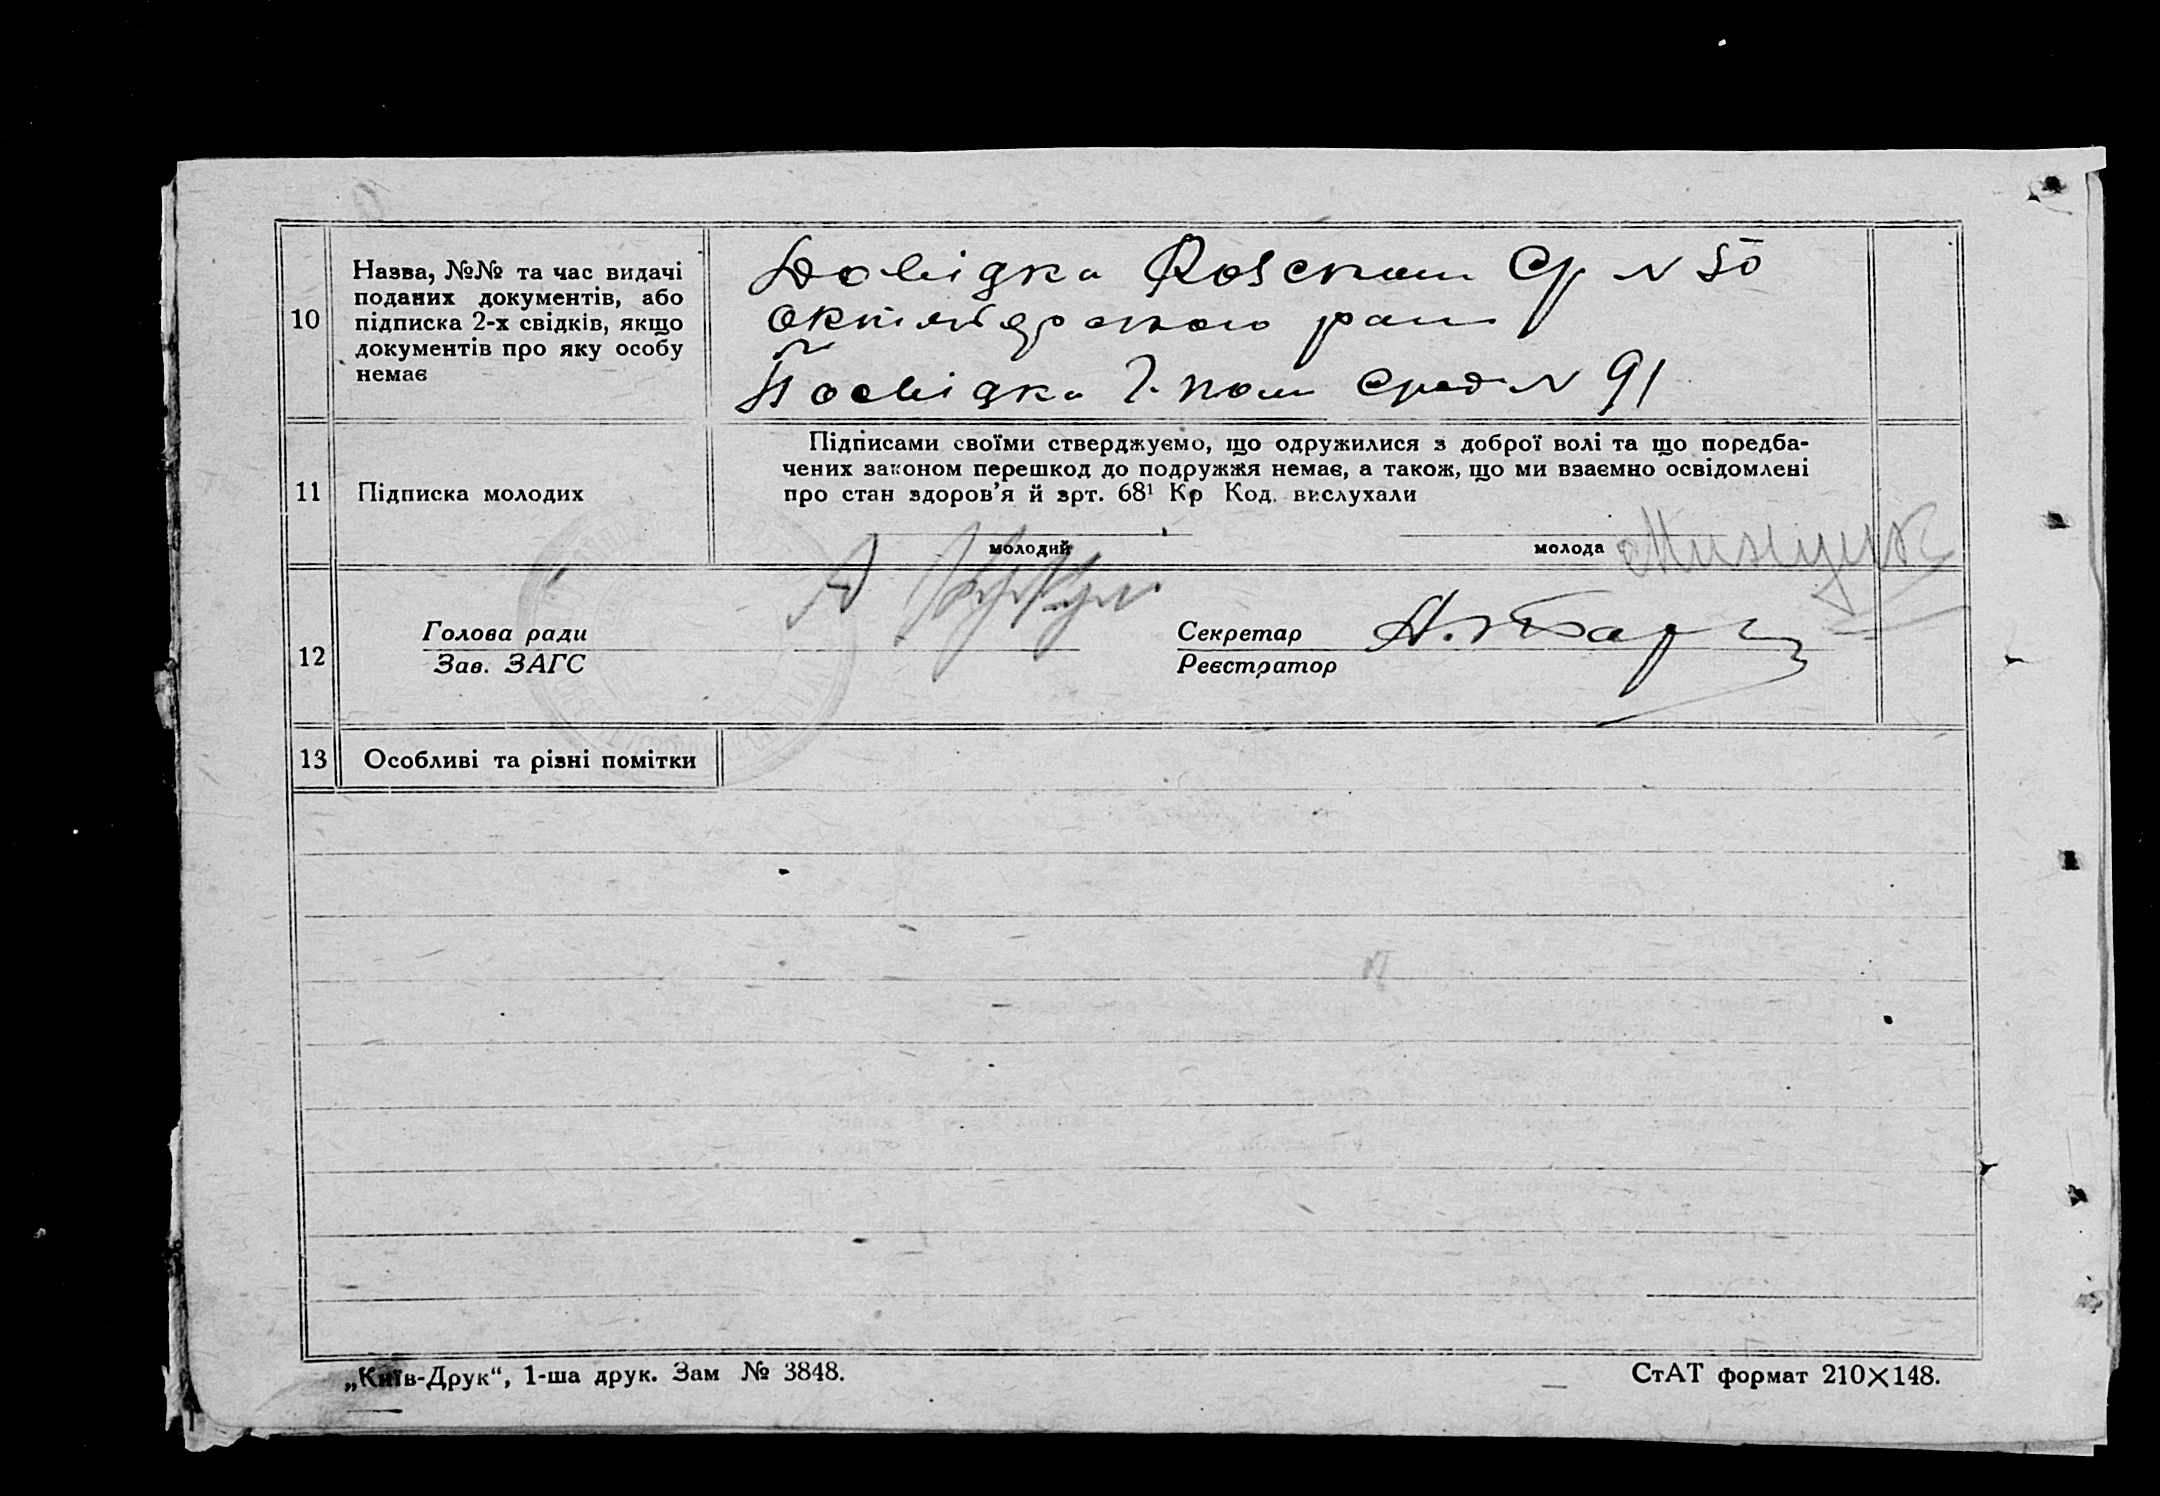 10
Назва, №№ та час видачі
поданих документів, або
підписка 2-х свідків, якщо
документів про яку особу
немає
Довідка ср N 50
Посвідка N 91
11
Підписка молодих
Підписами своїми стверджуємо, що одружилися з доброї волі та що поредба-
чених законом перешкод до подружжя немає, а також, що ми взаємно освідомлені
про стан здоров'я й зрт. 68¹ Кр Код. вислухали
молодий
молода
12
Голова ради
Зав. ЗАГС
Секретар
Реєстратор
13
Особливі та різні помітки
„Київ-Друк“, 1-ша друк. Зам № 3848.
СтАТ формат 210×148.